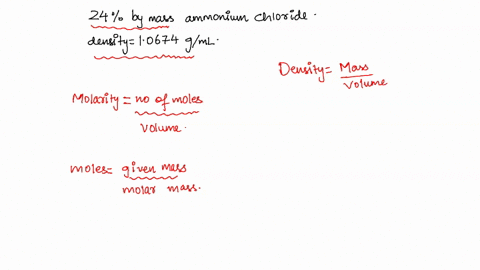 24% by mass ammonium chloride.
density = 1.0674 g/mL.
Density = Mass
Volume
Molarity = no of moles
Volume.
moles = given mass
molar mass.